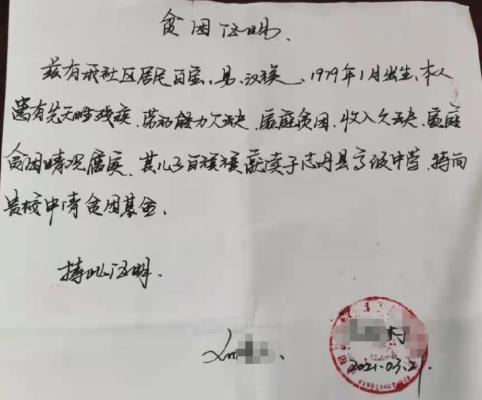 贫困证明.
兹有我社区居民百宝,男,汉族,1979年1月出生,本人
患有先天哮残疾,劳动能力欠缺,家庭贫困,收入欠缺,家庭
贫困情况属实,其儿子百猿猿就读于志丹县高级中学,特向
贵校申请贫困基金。
持此证明.
2021.03.21